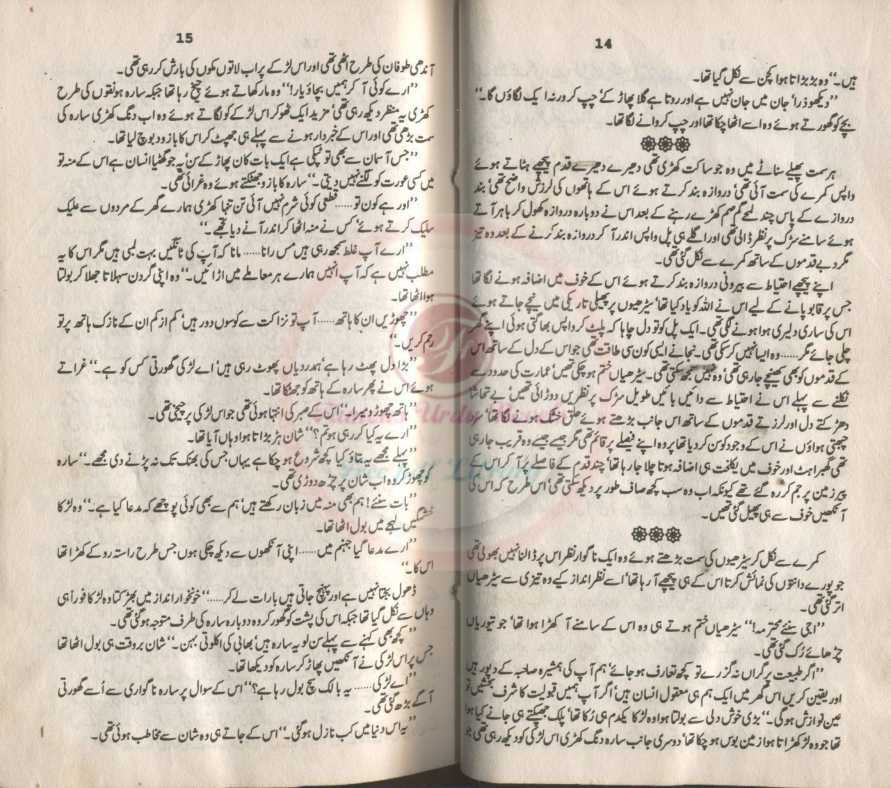 14
ہیں۔“ وہ بڑبڑاتا ہوا کچن سے نکل گیا تھا۔
”دیکھو ذرا‘ جان میں جان نہیں ہے اور روتا ہے گلا پھاڑ کے‘ چپ کر ورنہ ایک لگاؤں گا۔“
بچے کو گھورتے ہوئے وہ اسے اٹھا چکا تھا اور چپ کروانے لگا تھا۔
ہر سمت پھیلے سناٹے میں وہ جو ساکت کھڑی تھی دھیرے دھیرے قدم پیچھے ہٹاتے ہوئے
واپس کمرے کی سمت آئی تھی‘ دروازہ بند کرتے ہوئے اس کے ہاتھوں کی لرزش واضح تھی‘ بند
دروازے کے پاس چند لمحے گم صم کھڑے رہنے کے بعد اس نے دوبارہ دروازہ کھول کر باہر آتے
ہوئے سامنے سڑک پر نظر ڈالی تھی اور اگلے ہی پل واپس اندر آ کر دروازہ بند کرنے کے بعد وہ تیز
مگر دبے قدموں کے ساتھ کمرے سے نکل گئی تھی۔
اپنے پیچھے احتیاط سے بیرونی دروازہ بند کرتے ہوئے اس کے خوف میں اضافہ ہونے لگا تھا
جس پر قابو پانے کے لیے اس نے اللہ کو یاد کیا تھا‘ سیڑھیوں پر پھیلی تاریکی میں نیچے جاتے ہوئے
اس کی ساری دلیری ہوا ہونے لگی تھی۔ ایک پل کو تو دل چاہا کہ پلٹ کر واپس بھاگتی ہوئی اپنے گھر
چلی جائے مگر...... وہ ایسا نہیں کر سکی تھی۔ نجانے ایسی کون سی طاقت تھی جو اس کے دل کے ساتھ اس
کے قدموں کو بھی کھینچے جا رہی تھی‘ وہ نہیں سمجھ سکتی تھی۔ سیڑھیاں ختم ہو چکی تھیں‘ عمارت کی حدود سے
نکلنے سے پہلے اس نے احتیاط سے دائیں بائیں طویل سڑک پر نظریں دوڑائی تھیں‘ بے تحاشا
دھڑکتے دل اور لرزتے قدموں کے ساتھ اس جانب بڑھتے ہوئے حلق خشک ہونے لگا تھا‘ سرد
چبھتی ہواؤں نے اس کے وجود کو سن کر دیا تھا پر وہ اپنے فیصلے پر قائم تھی مگر جیسے جیسے وہ قریب جا رہی
تھی گھبراہٹ اور خوف میں یکلخت ہی اضافہ ہوتا چلا جا رہا تھا‘ چند قدم کے فاصلے پر آ کر اس کے
پیر زمین پر جم کر رہ گئے تھے کیونکہ اب وہ سب کچھ صاف طور پر دیکھ سکتی تھی‘ اس طرح کہ اس کی
آنکھیں خوف سے ہی پھیل گئی تھیں۔
کمرے سے نکل کر سیڑھیوں کی سمت بڑھتے ہوئے وہ ایک ناگوار نظر اس پر ڈالنا نہیں بھولی تھی
جو پورے دانتوں کی نمائش کرتا اس کے ہی پیچھے آ رہا تھا‘ اسے نظر انداز کیے وہ تیزی سے سیڑھیاں
اتر گئی تھی۔
”اجی سنئے محترمہ!“ سیڑھیاں ختم ہوتے ہی وہ اس کے سامنے آ کھڑا ہوا تھا‘ جو تیوریاں
چڑھائے رک گئی تھی۔
”اگر طبیعت پر گراں نہ گزرے تو کچھ تعارف ہو جائے‘ ہم آپ کی ہمشیرہ صاحبہ کے دیور ہیں
اور یقین کریں اس گھر میں ایک ہم ہی معقول انسان ہیں‘ اگر آپ ہمیں قبولیت کا شرف بخشیں تو
عین نوازش ہو گی۔“ بڑی خوش دلی سے بولتا ہوا وہ لڑکا یکدم ہی رکا تھا‘ پلک جھپکتے ہی جانے کیا ہوا
تھا جو وہ لڑکھڑاتا ہوا زمین بوس ہو چکا تھا‘ دوسری جانب سارہ دنگ کھڑی اس لڑکی کو دیکھ رہی تھی جو
15
آندھی طوفان کی طرح اٹھی تھی اور اس لڑکے پر اب لاتوں مکوں کی بارش کر رہی تھی۔
”ارے کوئی آ کر ہمیں بچاؤ یار!“ وہ مار کھاتے ہوئے چیخ رہا تھا جبکہ سارہ ہونقوں کی طرح
کھڑی یہ منظر دیکھ رہی تھی‘ مزید ایک ٹھوکر اس لڑکے کو لگاتے ہوئے وہ اب دنگ کھڑی سارہ کی
سمت بڑھی تھی اور اس کے خبردار ہونے سے پہلے ہی جھپٹ کر اس کا بازو دبوچ لیا تھا۔
”جس آسمان سے بھی تو ٹپکی ہے ایک بات کان پھاڑ کے سن‘ یہ جو گھٹیا انسان ہے اس کے منہ تو
میں کسی عورت کو لگنے نہیں دیتی۔“ سارہ کا بازو جھٹکتے ہوئے وہ غرائی تھی۔
”اور ہے کون تو...... قطعی کوئی شرم نہیں آئی تن تنہا کھڑی ہمارے گھر کے مردوں سے علیک
سلیک کرتے ہوئے‘ کس نے منہ اٹھا کر اندر آنے دیا تجھے۔“
”ارے آپ غلط سمجھ رہی ہیں مس رانا...... مانا کہ آپ کی ٹانگیں بہت لمبی ہیں مگر اس کا یہ
مطلب نہیں ہے کہ آپ انہیں ہمارے ہر معاملے میں اڑائیں۔“ وہ اپنی گردن سہلاتا جھلا کر بولتا
ہوا اٹھا تھا۔
”چھوڑیں ان کا ہاتھ...... آپ تو نزاکت سے کوسوں دور ہیں‘ کم از کم ان کے نازک ہاتھ پر تو
رحم کریں۔“
”بڑا دل پھٹ رہا ہے‘ ہمدردیاں پھوٹ رہی ہیں‘ اے لڑکی گھورتی کس کو ہے۔“ غراتے
ہوئے اس نے پھر سارہ کے ہاتھ کو جھٹکا تھا۔
”ہاتھ چھوڑو میرا۔“ اس کے صبر کی انتہا ہوئی تھی جو اس لڑکی پر چیخی تھی۔
”ارے یہ کیا کر رہی ہو تم؟“ شان ہڑبڑاتا ہوا وہاں آیا تھا۔
”پہلے مجھے یہ بتاؤ کیا کچھ شروع ہو چکا ہے یہاں جس کی بھنک تک نہ پڑنے دی مجھے۔“ سارہ
کو چھوڑ کر وہ اب شان پر چڑھ دوڑی تھی۔
”بات سنئے! ہم بھی منہ میں زبان رکھتے ہیں‘ ہم سے بھی کوئی پوچھے کہ مدعا کیا ہے۔“ وہ لڑکا
خشمگیں لہجے میں بول اٹھا تھا۔
”ارے مدعا گیا جہنم میں...... اپنی آنکھوں سے دیکھ چکی ہوں جس طرح راستہ روکے کھڑا تھا
اس کا۔“
ڈھول بجتا نہیں ہے اور پہنچ جاتی ہیں بارات لے کر......“ خونخوار انداز میں بھڑکتا وہ لڑکا فوراً ہی
وہاں سے نکل گیا تھا جبکہ اس کی پشت کو گھور کر وہ دوبارہ سارہ کی طرف متوجہ ہو گئی تھی۔
”کچھ بھی کہنے سے پہلے سن لو یہ سارہ ہیں‘ بھابی کی اکلوتی بہن۔“ شان بروقت ہی بول اٹھا تھا
جس پر اس لڑکی نے آنکھیں پھاڑ کر سارہ کو دیکھا تھا۔
”اے لڑکی...... یہ بالک سچ بول رہا ہے؟“ اس کے سوال پر سارہ ناگواری سے اُسے گھورتی
آگے بڑھ گئی تھی۔
”یہ اس دنیا میں کب نازل ہو گئی۔“ اس کے جاتے ہی وہ شان سے مخاطب ہوئی تھی۔